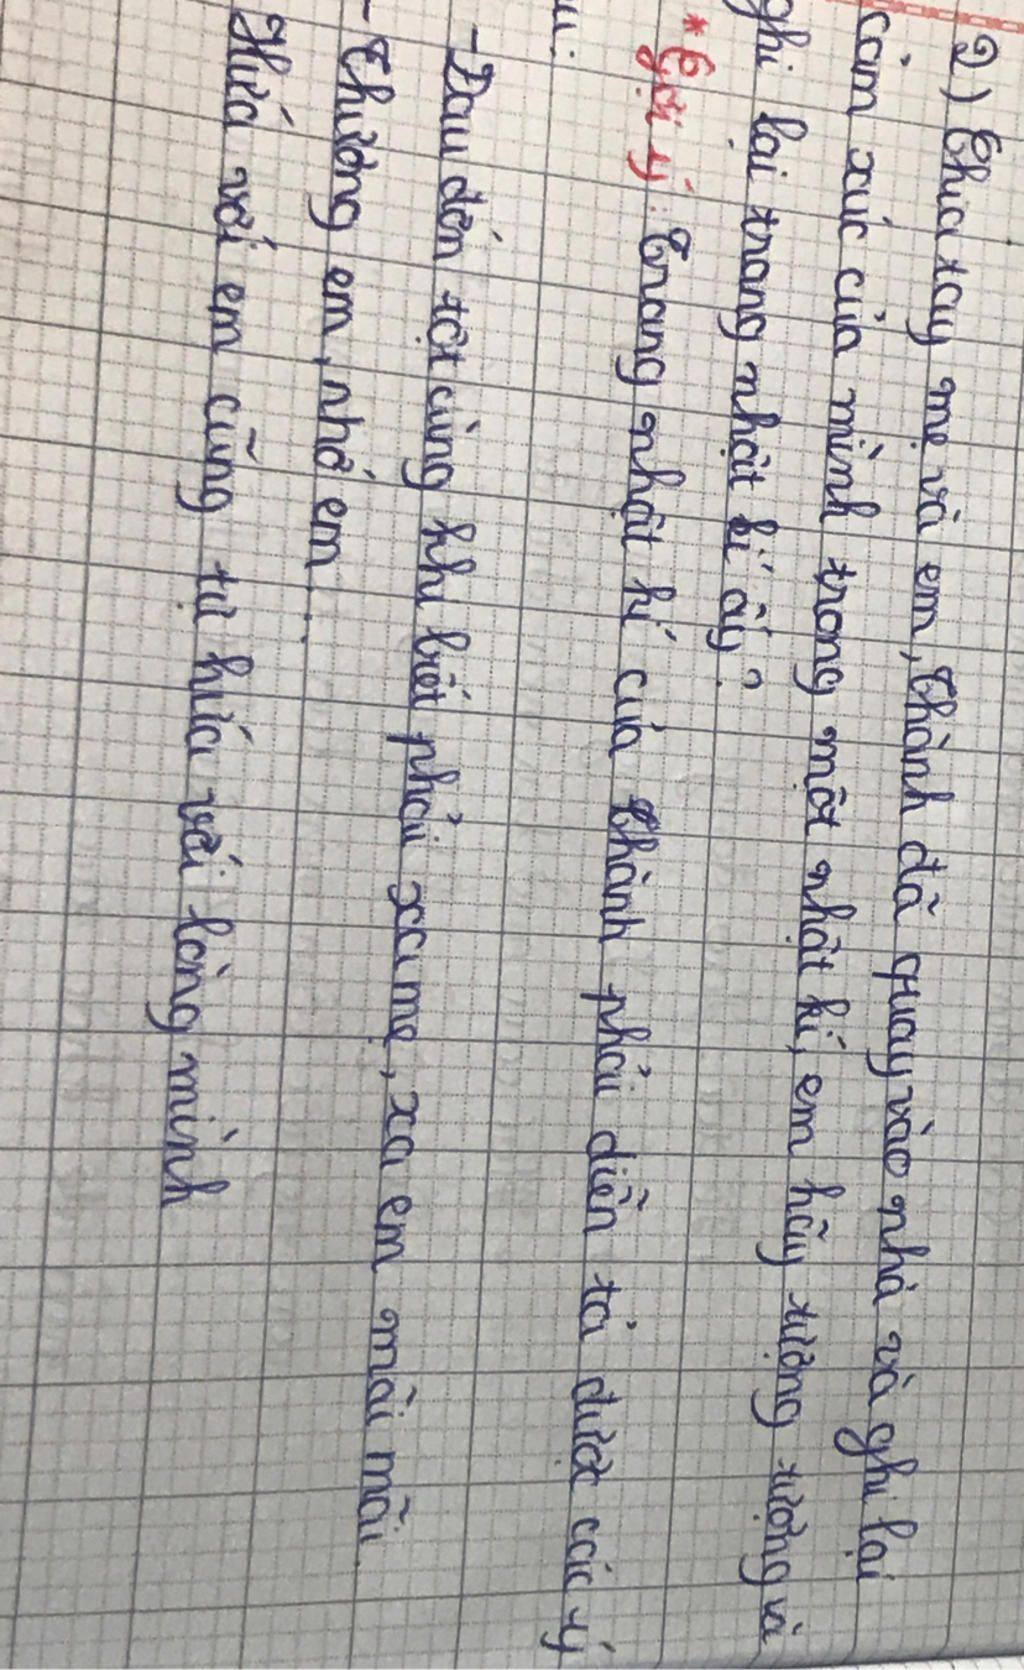 2) Chia tay mẹ và em, Thành đã quay vào nhà và ghi lại
cảm xúc của mình trong một nhật kí, em hãy tưởng tượng và
ghi lại trang nhật kí ấy?
* Gợi ý: Trang nhật kí của Thành phải diễn tả được các ý
au:
- Đau đớn tột cùng khi biết phải xa mẹ, xa em mãi mãi
- Thương em, nhớ em...
Hứa với em cũng tự hứa với lòng mình